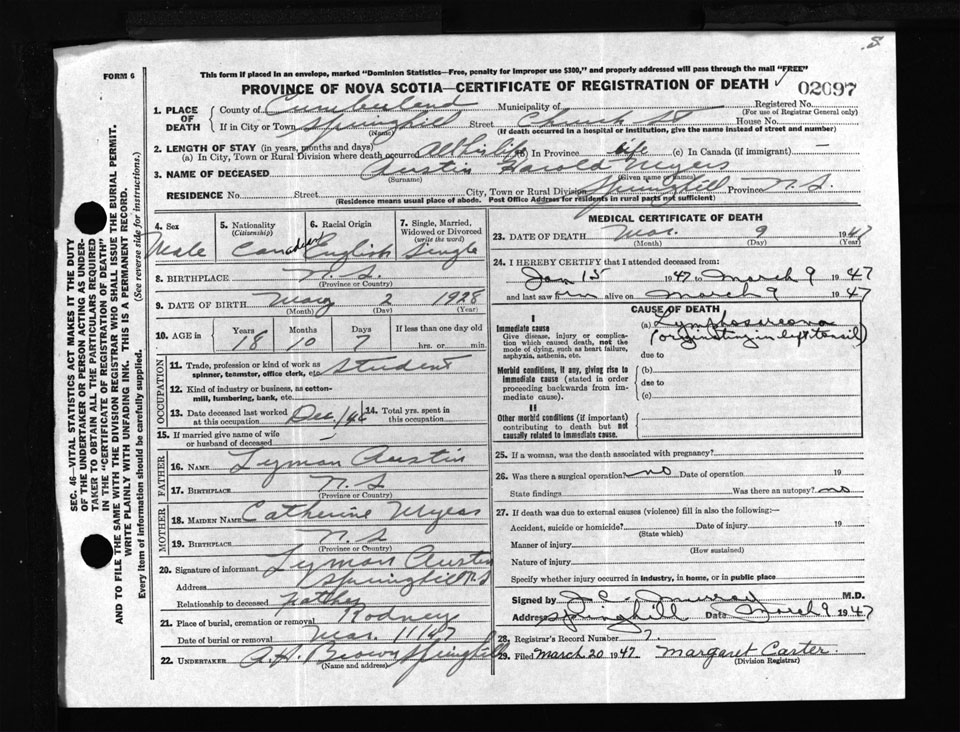 S.
FORM 6
This form if placed in an envelope, marked "Dominion Statistics—Free, penalty for improper use $300," and properly addressed will pass through the mail "FREE"
PROVINCE OF NOVA SCOTIA—CERTIFICATE OF REGISTRATION OF DEATH
02097
1. PLACE OF DEATH
County of Cumberland Municipality of Registered No.
(For use of Registrar General only)
If in City or Town Springhill Street Church St House No.
(Name) (If death occurred in a hospital or institution, give the name instead of street and number)
2. LENGTH OF STAY (in years, months and days)
(a) In City, Town or Rural Division where death occurred All his life (b) In Province life (c) In Canada (if immigrant) —
3. NAME OF DECEASED Austin Harold Myers
(Surname) (Given name or names)
RESIDENCE No. Street City, Town or Rural Division Springhill Province N.S.
(Residence means usual place of abode. Post Office Address for residents in rural parts not sufficient)
4. Sex Male
5. Nationality (Citizenship) Canadian
6. Racial Origin English
7. Single, Married, Widowed or Divorced (write the word) Single
8. BIRTHPLACE N.S.
(Province or Country)
9. DATE OF BIRTH May 2 1928
(Month) (Day) (Year)
10. AGE in Years Months Days If less than one day old
18 10 7 hrs. or min.
OCCUPATION
11. Trade, profession or kind of work as spinner, teamster, office clerk, etc. Student
12. Kind of industry or business, as cotton-mill, lumbering, bank, etc.
13. Date deceased last worked at this occupation Dec/46
14. Total yrs. spent in this occupation
15. If married give name of wife or husband of deceased —
FATHER
16. NAME Lyman Austin
17. BIRTHPLACE N.S
(Province or Country)
MOTHER
18. MAIDEN NAME Catherine Myers
19. BIRTHPLACE N.S
(Province or Country)
20. Signature of informant Lyman Austin
Address Springhill N.S
Relationship to deceased Father
21. Place of burial, cremation or removal Rodney
Date of burial or removal Mar. 11/47
22. UNDERTAKER A.H. Brown Springhill
(Name and address)
MEDICAL CERTIFICATE OF DEATH
23. DATE OF DEATH Mar. 9 1947
(Month) (Day) (Year)
24. I HEREBY CERTIFY that I attended deceased from:
Jan 15 1947 to March 9 1947
and last saw him alive on March 9 1947
CAUSE OF DEATH
I
Immediate cause
Give disease, injury or complication which caused death, not the mode of dying, such as heart failure, asphyxia, asthenia, etc.
(a) Lymphosarcoma
(originating in left tonsil)
due to
Morbid conditions, if any, giving rise to immediate cause (stated in order proceeding backwards from immediate cause).
(b)
due to
(c)
II
Other morbid conditions (if important) contributing to death but not causally related to immediate cause.
25. If a woman, was the death associated with pregnancy?
26. Was there a surgical operation? no Date of operation 19
State findings Was there an autopsy? no
27. If death was due to external causes (violence) fill in also the following:—
Accident, suicide or homicide? Date of injury 19
(State which)
Manner of injury
(How sustained)
Nature of injury
Specify whether injury occurred in industry, in home, or in public place
Signed by J. C. Murray M.D.
Address Springhill Date March 9 1947
28. Registrar's Record Number 7.
29. Filed March 20 1947 Margaret Carter.
(Division Registrar)
SEC. 46—VITAL STATISTICS ACT MAKES IT THE DUTY
OF THE UNDERTAKER OR PERSON ACTING AS UNDER-
TAKER TO OBTAIN ALL THE PARTICULARS REQUIRED
IN THE "CERTIFICATE OF REGISTRATION OF DEATH"
AND TO FILE THE SAME WITH THE DIVISION REGISTRAR WHO SHALL ISSUE THE BURIAL PERMIT.
WRITE PLAINLY WITH UNFADING INK. THIS IS A PERMANENT RECORD.
Every item of information should be carefully supplied. (See reverse side for instructions.)